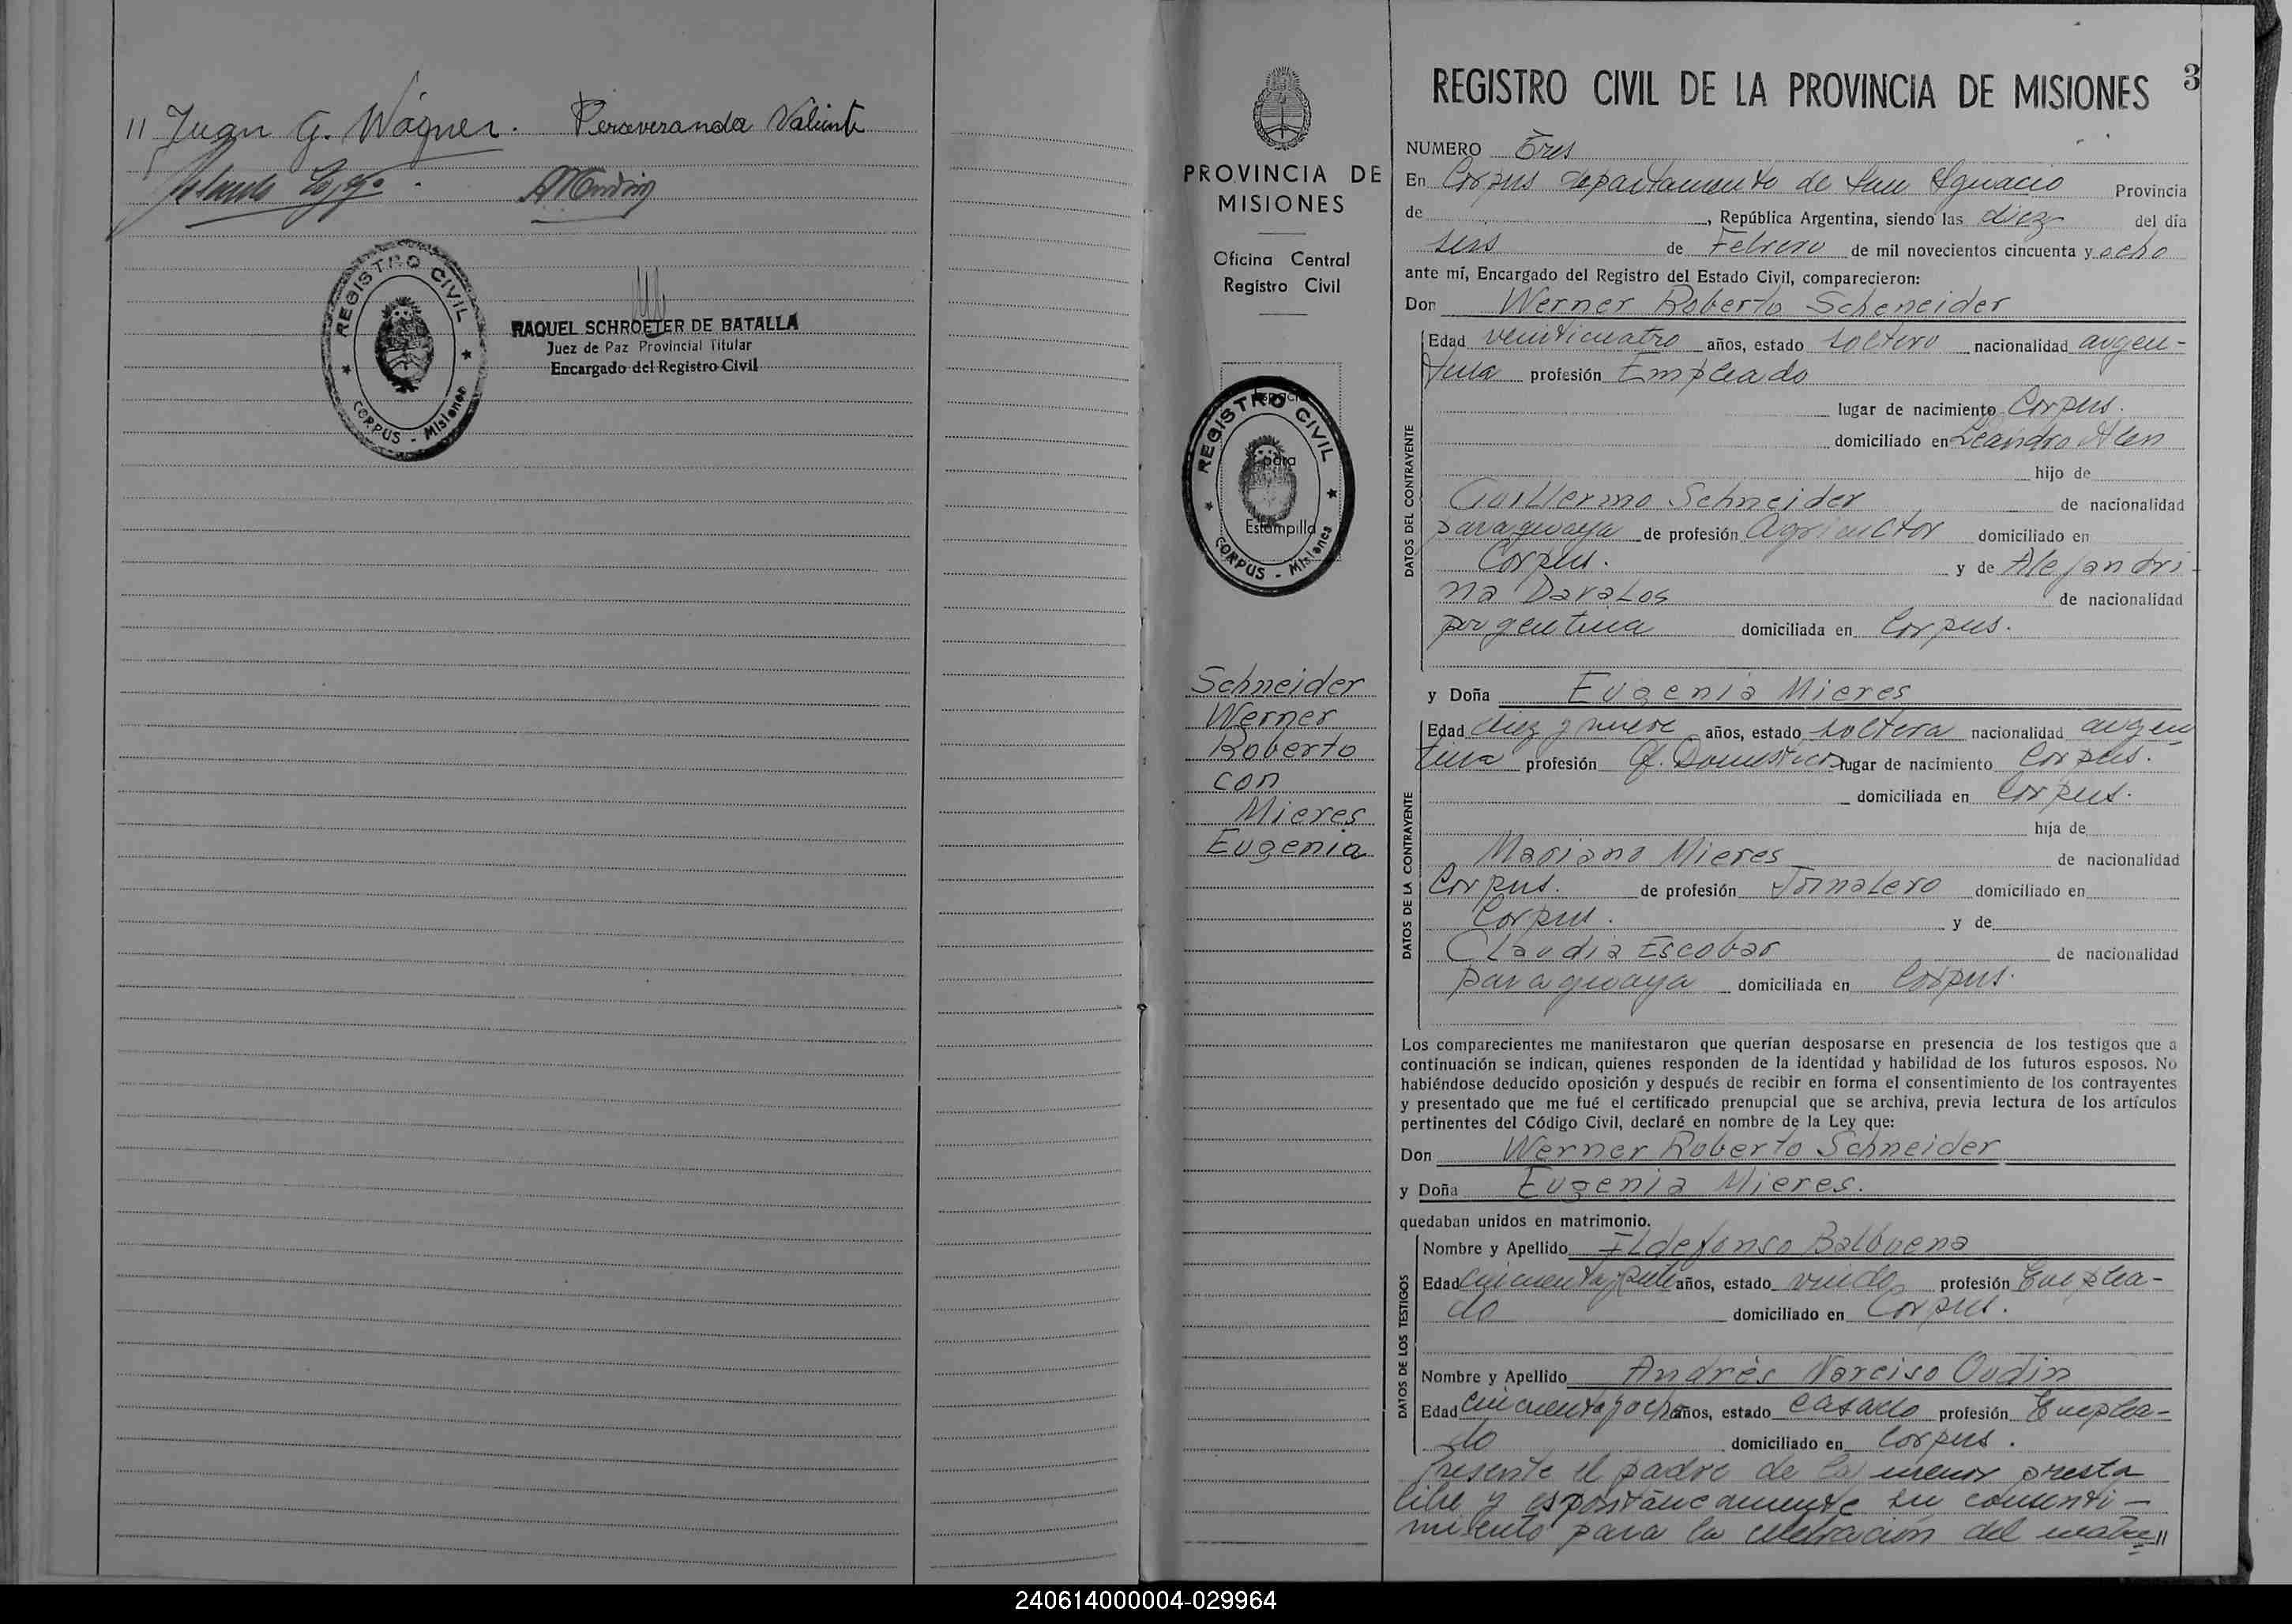 " Juan G. Wágner. Perseveranda Valiente
REGISTRO CIVIL
CORPUS - Misiones
RAQUEL SCHROETER DE BATALLA
Juez de Paz Provincial Titular
Encargado del Registro Civil
PROVINCIA DE
MISIONES
Oficina Central
Registro Civil
Espacio
para
Estampilla
REGISTRO CIVIL
CORPUS - Misiones
Schneider
Werner
Roberto
con
Mieres
Eugenia
REGISTRO CIVIL DE LA PROVINCIA DE MISIONES 3
NUMERO Tres
En Corpus departamento de San Ignacio Provincia
de , República Argentina, siendo las diez del día
seis de Febrero de mil novecientos cincuenta y ocho
ante mí, Encargado del Registro del Estado Civil, comparecieron:
Don Werner Roberto Scheneider
DATOS DEL CONTRAYENTE
Edad veinticuatro años, estado soltero nacionalidad argen-
tina profesión Empleado
lugar de nacimiento Corpus.
domiciliado en Leandro Alen
hijo de
Guillermo Schneider de nacionalidad
paraguaya de profesión Agricultor domiciliado en
Corpus. y de Alejandri-
na Davalos de nacionalidad
argentina domiciliada en Corpus.
y Doña Eugenia Mieres
DATOS DE LA CONTRAYENTE
Edad diez y nueve años, estado soltera nacionalidad argen
tina profesión Q. Domésticos lugar de nacimiento Corpus.
domiciliada en Corpus.
hija de
Mariano Mieres de nacionalidad
Corpus. de profesión Jornalero domiciliado en
Corpus. y de
Claudia Escobar de nacionalidad
paraguaya domiciliada en Corpus.
Los comparecientes me manifestaron que querían desposarse en presencia de los testigos que a
continuación se indican, quienes responden de la identidad y habilidad de los futuros esposos. No
habiéndose deducido oposición y después de recibir en forma el consentimiento de los contrayentes
y presentado que me fué el certificado prenupcial que se archiva, previa lectura de los artículos
pertinentes del Código Civil, declaré en nombre de la Ley que:
Don Werner Roberto Schneider
y Doña Eugenia Mieres.
quedaban unidos en matrimonio.
DATOS DE LOS TESTIGOS
Nombre y Apellido Ildefonso Balbuena
Edad cincuenta y siete años, estado viudo profesión Emplea-
do domiciliado en Corpus.
Nombre y Apellido Andrés Narciso Oudin
Edad cincuenta y ocho años, estado casado profesión Emplea-
do domiciliado en Corpus.
Presente el padre de la menor presta
libre y espontáneamente su consenti-
miento para la celebración del matri"
240614000004-029964